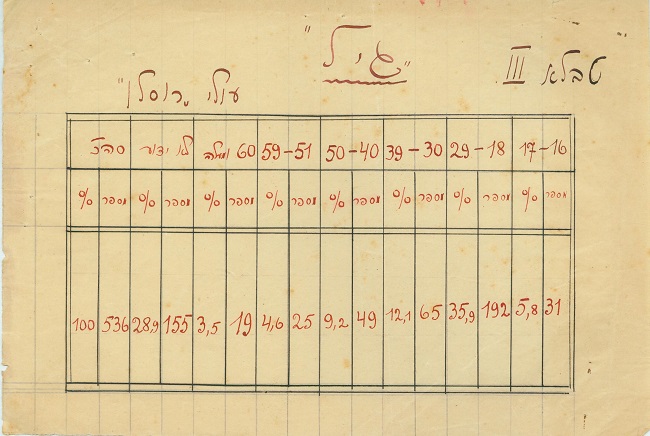 טבלא III
"גיל"
עולי "רוסלן"
16-17 18-29 30-39 40-50 51-59 60 ומעלה לא ידוע סה"כ
מספר % מספר % מספר % מספר % מספר % מספר % מספר % מספר %
31 5,8 192 35,9 65 12,1 49 9,2 25 4,6 19 3,5 155 28,9 536 100